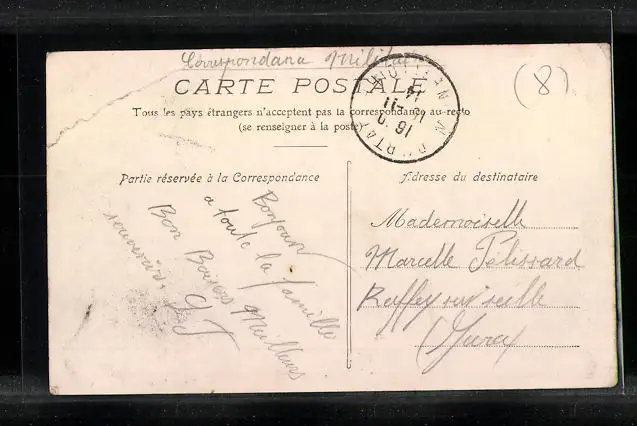 Correspondance Militaire
CARTE POSTALE
(8)
Tous les pays étrangers n'acceptent pas la correspondance au recto
(se renseigner à la poste)
Partie réservée à la Correspondance
Bonjour
a toute la famille
Bon Baisers Meilleurs
souvenirs
Adresse du destinataire
Mademoiselle
Marcelle Pélissard
Ruffey sur seille
(Jura)